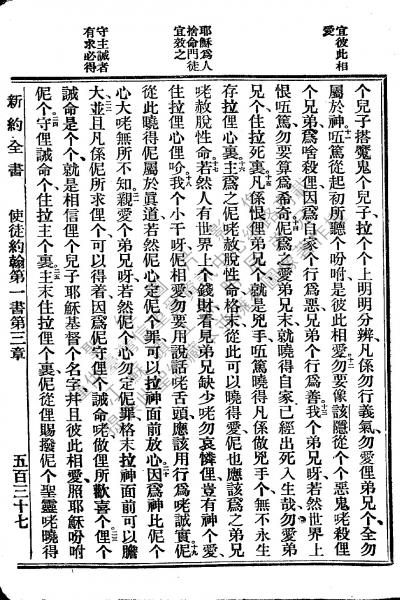 宜彼此相
愛
耶穌爲人
捨命門徒
宜效之
守主誡者
有求必得
个兒子搭魔鬼个兒子拉个上明明分辨凡係勿行義氣勿愛俚弟兄个全勿
屬於神㕶篤從起初所聽个吩咐是彼此相愛勿要像該隱從个个惡鬼咾殺俚
个弟兄爲啥殺俚因爲自家个行爲惡弟兄个行爲善我个弟兄呀若然世界上
恨㕶篤勿要算爲希奇伲爲之愛弟兄末就曉得自家已經出死入生哉勿愛弟
兄个住拉死裏凡係恨俚弟兄个就是兇手㕶篤曉得凡係做兇手个無不永生
存拉俚心裏主爲之伲咾赦脫性命格末從此可以曉得愛伲也應該爲之弟兄
咾赦脫性命若然人有世界上个錢財看見弟兄缺少咾勿哀憐俚豈有神个愛
住拉俚心裏吤我个小干呀伲相愛勿要用說話咾舌頭應該用行爲咾誠實伲
從此曉得伲屬於眞道若然伲心定伲个罪可以拉神面前放心因爲神比伲个
心大咾無所不知親愛个弟兄呀若然伲个心勿定伲罪格末拉神面前可以膽
大並且凡係伲所求俚个可以得着因爲伲守俚个誡命咾做俚所歡喜个俚个
誡命是个个就是相信俚个兒子耶穌基督个名字并且彼此相愛照耶穌吩咐
伲个守俚誡命个住拉主个裏主末住拉俚个裏伲從俚賜撥伲个聖靈咾曉得
新約全書 使徒約翰第一書第三章 五百三十七